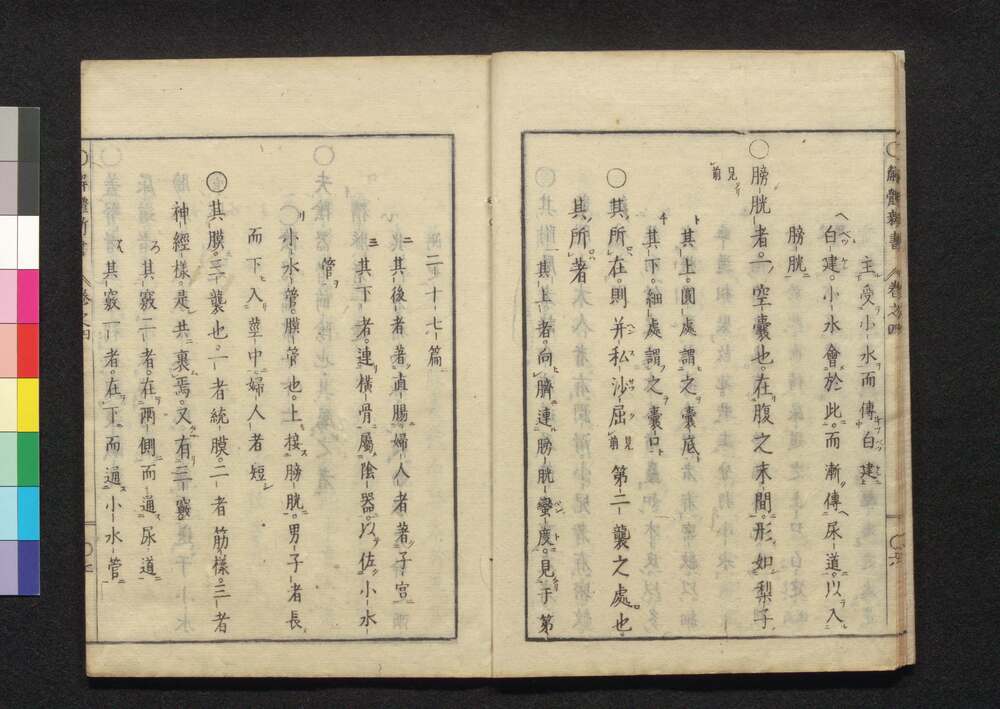 解體新書 卷之四
主受小水而傳白建
白建小水會於此而漸傳尿道以入
膀胱
○膀胱者一空囊也在腹之末間形如梨子
見前
ト其上圓處謂之囊底
チ其下細處謂之囊口
○其所在則并私沙屈見前第二襲之處也
其所著
一其上者向臍連膀胱蠻度見于第
二十七篇
二其後者著直腸婦人者著子宮
三其下者連橫骨屬陰器以佐小水
管
リ小水管膜管也上接膀胱男子者長
而下入莖中婦人者短
○其膜三襲也一者統膜二者筋樣三者
神經樣是共裹焉又有三竅
ろ其竅二者在兩側而通尿道
其竅一者在下而通小水管
解體新書 卷之四